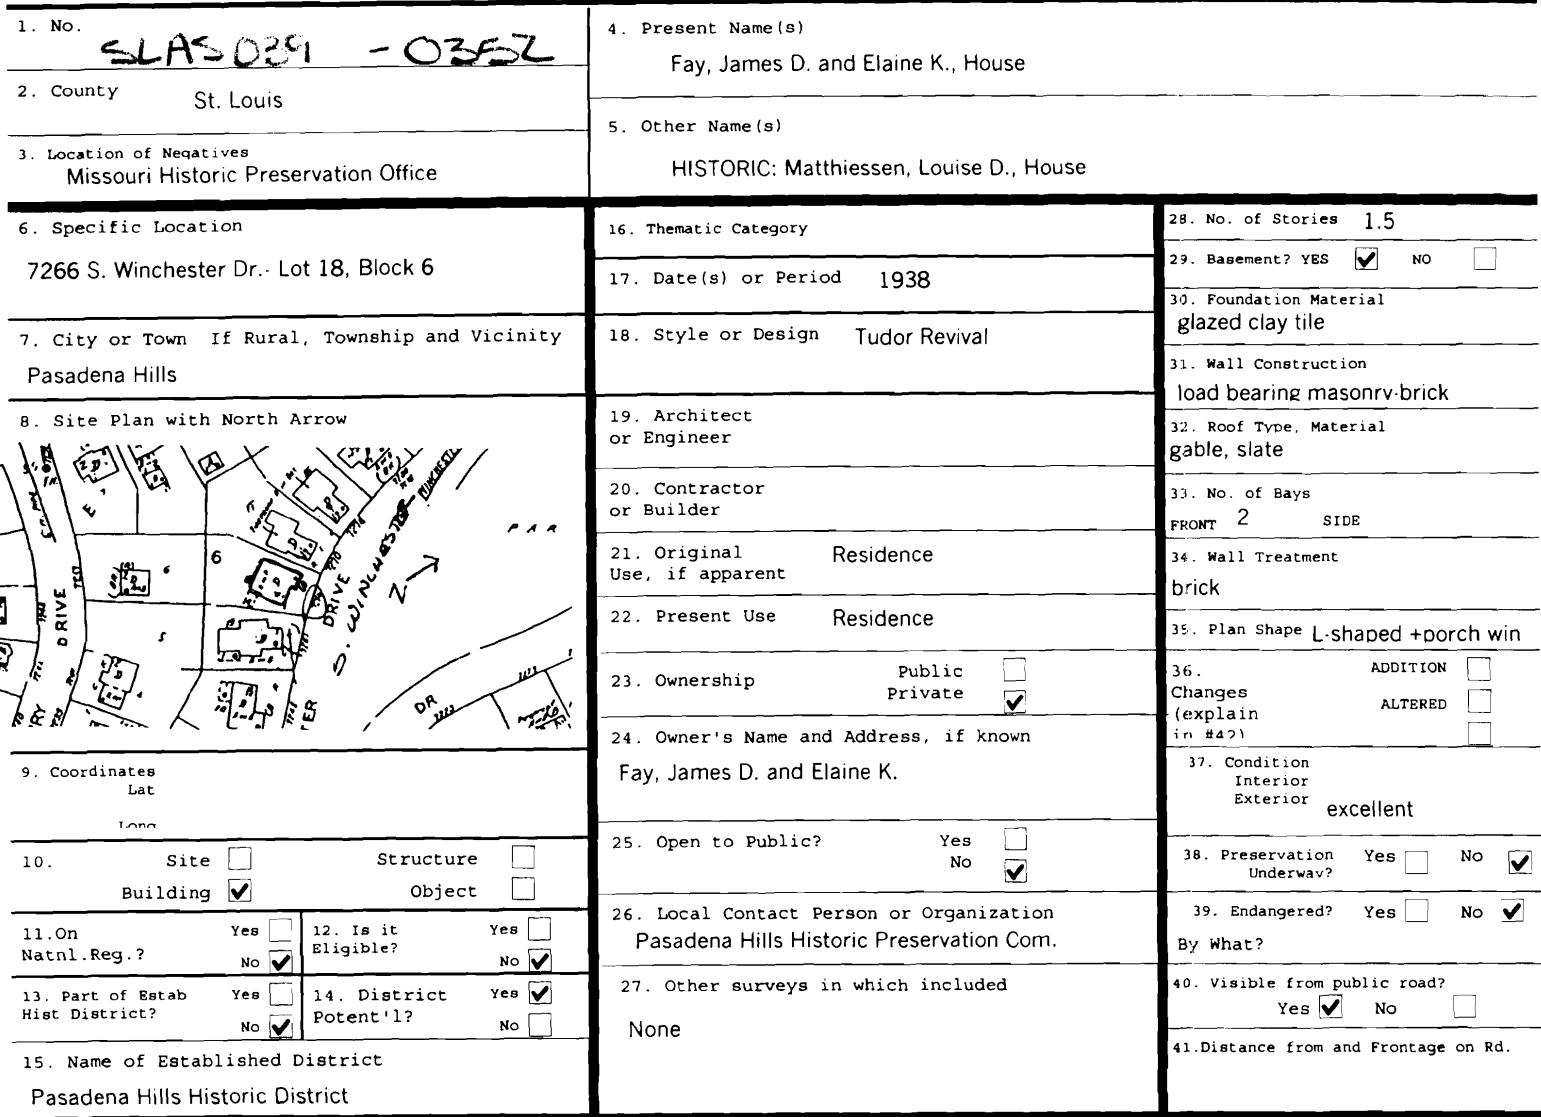 1. No.
SLAS039 - 0352
2. County St. Louis
3. Location of Negatives
Missouri Historic Preservation Office
4. Present Name(s)
Fay, James D. and Elaine K., House
5. Other Name(s)
HISTORIC: Matthiessen, Louise D., House
6. Specific Location
7266 S. Winchester Dr.- Lot 18, Block 6
7. City or Town If Rural, Township and Vicinity
Pasadena Hills
8. Site Plan with North Arrow
DRIVE
6
6
5
DRIVE
S. WINCHESTER
PAR
DR
RY
TER
N
9. Coordinates
Lat
Long
10. Site Structure
Building ✔ Object
11.On Yes
Natnl.Reg.? No ✔
12. Is it Yes
Eligible? No ✔
13. Part of Estab Yes
Hist District? No ✔
14. District Yes ✔
Potent'l? No
15. Name of Established District
Pasadena Hills Historic District
16. Thematic Category
17. Date(s) or Period 1938
18. Style or Design Tudor Revival
19. Architect
or Engineer
20. Contractor
or Builder
21. Original Residence
Use, if apparent
22. Present Use Residence
23. Ownership Public
Private ✔
24. Owner's Name and Address, if known
Fay, James D. and Elaine K.
25. Open to Public? Yes
No ✔
26. Local Contact Person or Organization
Pasadena Hills Historic Preservation Com.
27. Other surveys in which included
None
28. No. of Stories 1.5
29. Basement? YES ✔ NO
30. Foundation Material
glazed clay tile
31. Wall Construction
load bearing masonry-brick
32. Roof Type, Material
gable, slate
33. No. of Bays
FRONT 2 SIDE
34. Wall Treatment
brick
35. Plan Shape L-shaped +porch win
36. ADDITION
Changes
(explain ALTERED
in #42)
37. Condition
Interior
Exterior excellent
38. Preservation Yes No ✔
Underway?
39. Endangered? Yes No ✔
By What?
40. Visible from public road?
Yes ✔ No
41.Distance from and Frontage on Rd.